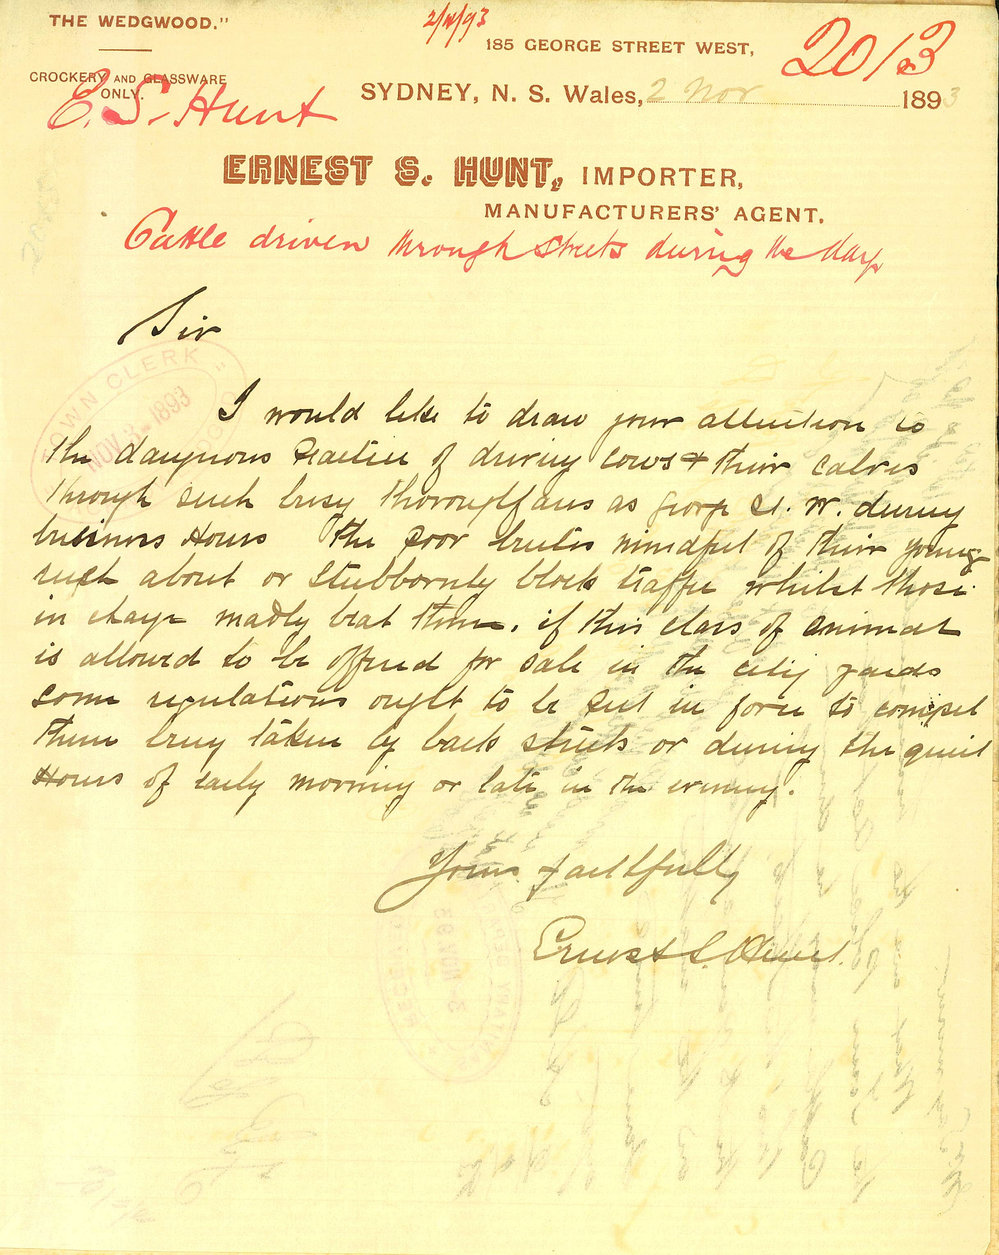 THE WEDGWOOD."
2/11/93
185 GEORGE STREET WEST,
2013
CROCKERY AND GLASSWARE
ONLY.
E. S. Hunt
SYDNEY, N. S. Wales, 2 Nov 1893
ERNEST S. HUNT, IMPORTER,
MANUFACTURERS' AGENT.
Cattle driven through streets during the day
Sir
TOWN CLERK
NOV 3 - 1893
I would like to draw your attention to
the dangerous practice of driving cows & their calves
through such busy thoroughfares as George St. W. during
business Hours The poor brutes mindful of their young
rush about or stubbornly block traffic whilst those
in charge madly beat them. if this class of animal
is allowed to be offered for sale in the city yards
some regulations ought to be put in force to compel
them being taken by back streets or during the quiet
Hours of early morning or late in the evening.
Yours faithfully
Ernest S. Hunt.
3 NOV 93